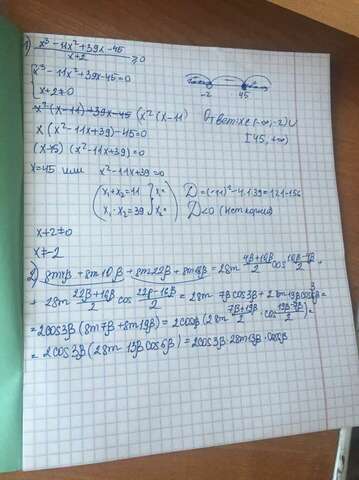 1) x³ - 11x² + 39x - 45 / x+2 ≥ 0
{ x³ - 11x² + 39x - 45 = 0
x + 2 ≠ 0
-2 45
x²(x-11)+39x-45 (x²(x-11)
Ответ: x∈(-∞, -2)∪
[45, +∞)
x(x² - 11x + 39) - 45 = 0
(x-45) (x² - 11x + 39) = 0
x = 45 или x² - 11x + 39 = 0
( x₁ + x₂ = 11 } x₁=
x₁ · x₂ = 39 } x₂= )
D = (-11)² - 4·39 = 121 - 156
D < 0 (нет корней)
x + 2 ≠ 0
x ≠ -2
2) sin4β + sin10β + sin22β + sin16β = 2sin 4β+10β/2 cos 10β-4β/2 +
+ 2sin 22β+16β/2 cos 22β-16β/2 = 2sin 7β cos3β + 2sin19β cos3β =
= 2cos3β (sin7β + sin19β) = 2cos3β (2sin 7β+19β/2 · cos 19β-7β/2) =
= 2cos3β (2sin 13β cos6β) = 2cos3β · 2sin13β · cos6β